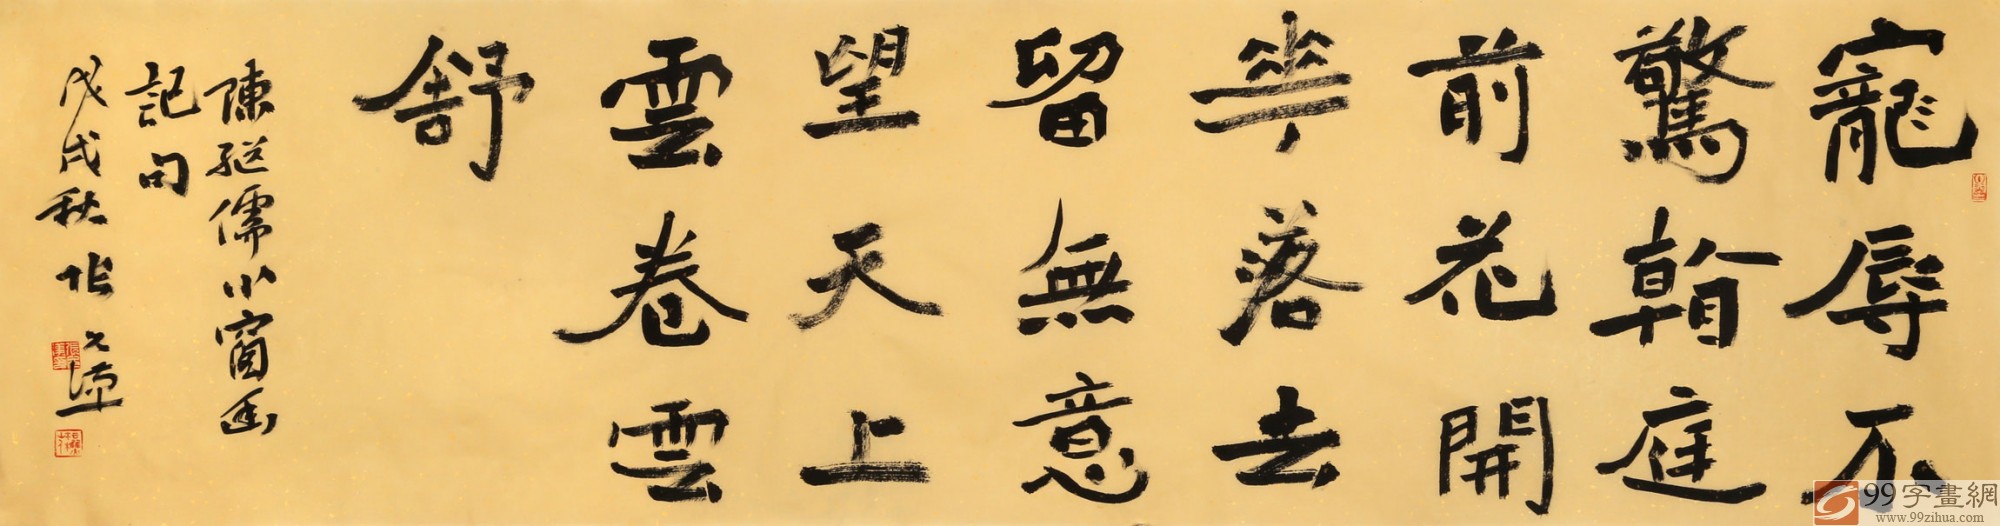 寵辱不
驚看庭
前花開
華落去
留無意
望天上
雲卷雲
舒
陳继儒小窗幽
記句
戊戌秋 张文
99字畫網
www.99zihua.com